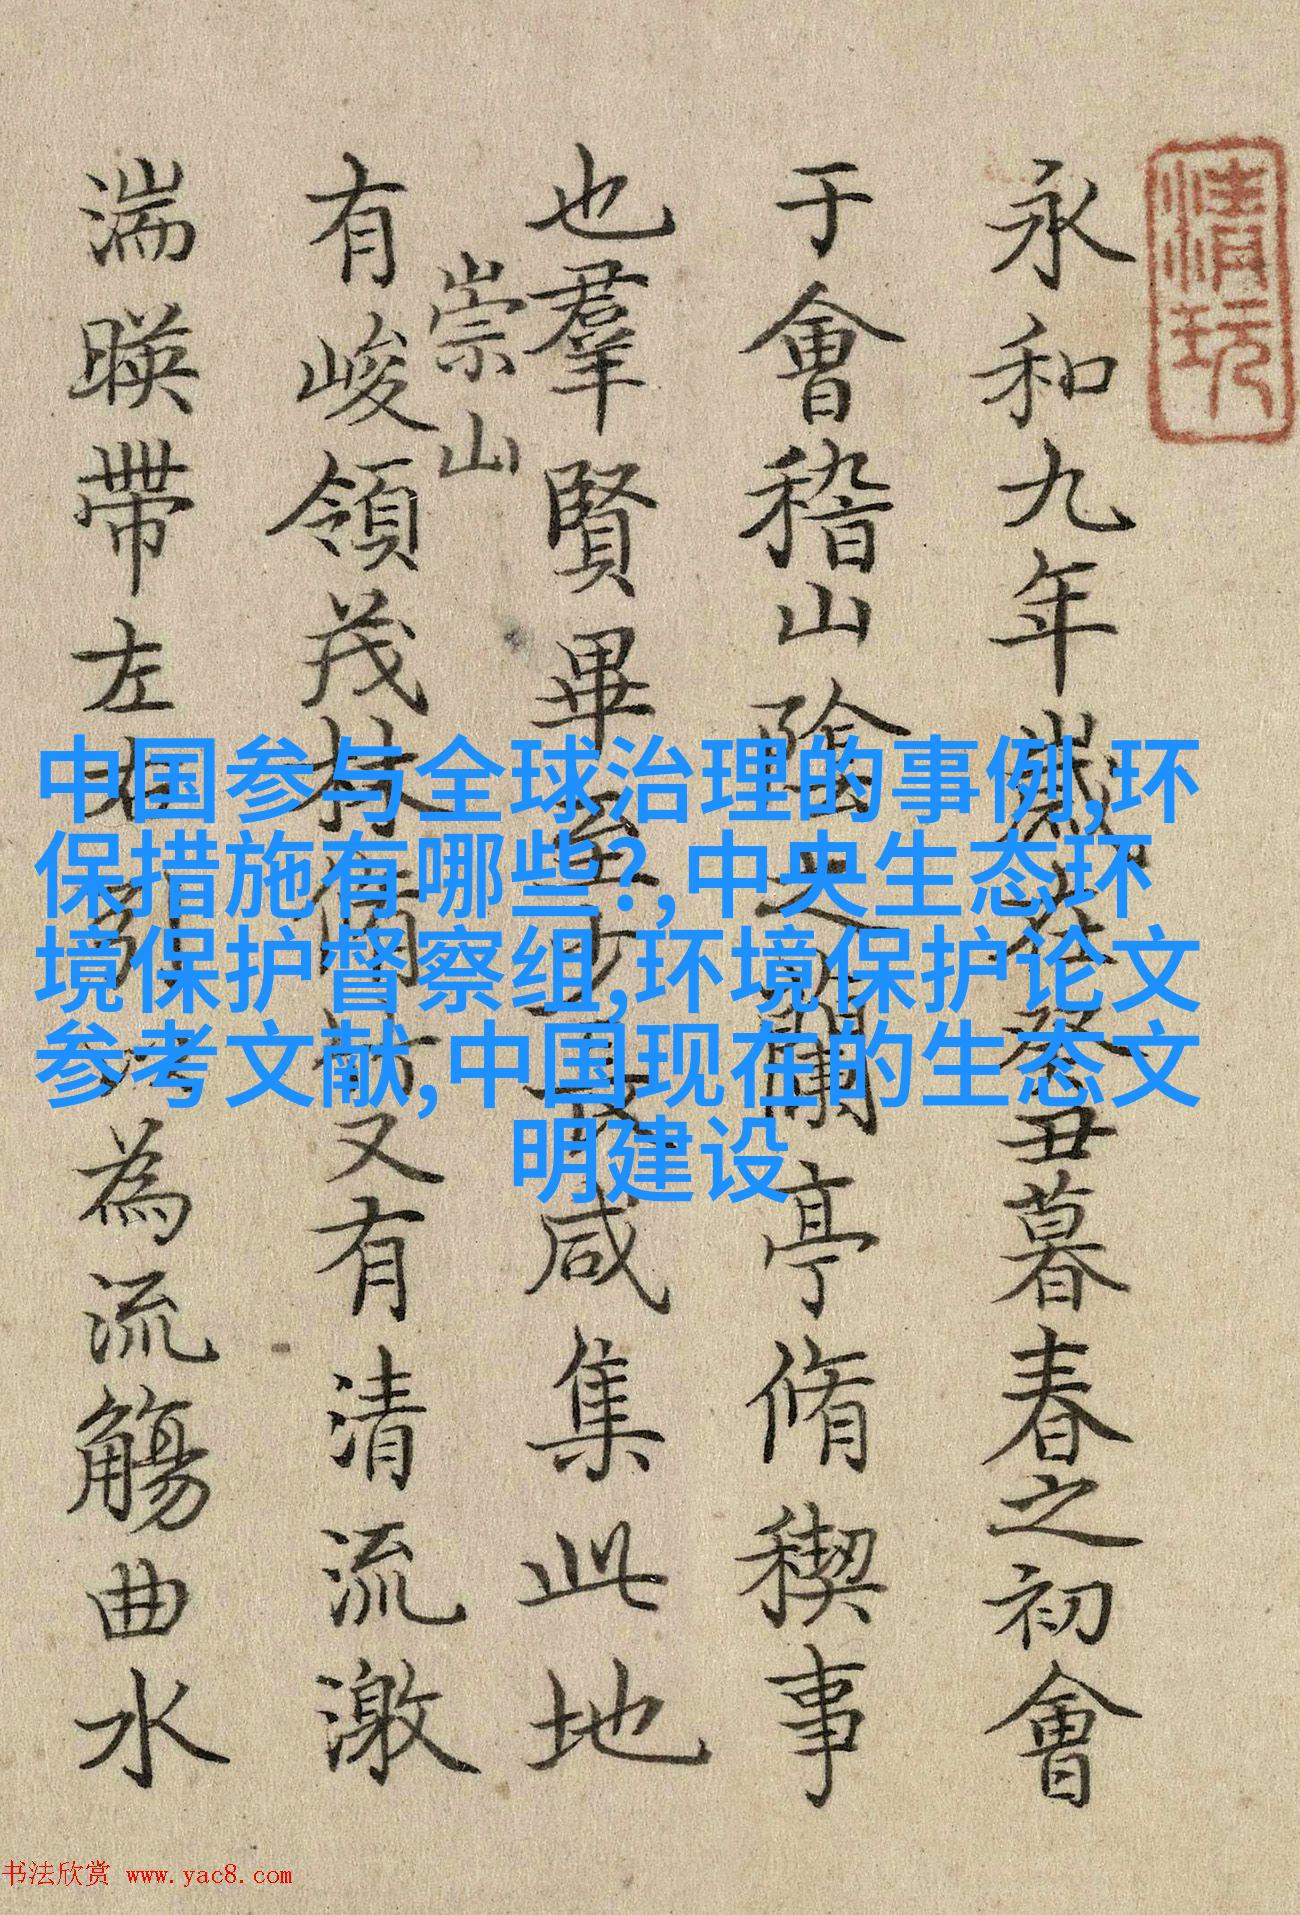 清玩
永和九年歲在癸丑暮春之初會
于會稽山陰之蘭亭脩稧事
也羣賢畢至少長咸集此地
崇山
有峻領茂林脩竹又有清流激
湍暎帶左右引以為流觴曲水
中国参与全球治理的事例,环
保措施有哪些?,中央生态环
境保护督察组,环境保护论文
参考文献,中国现在的生态文
明建设
书法欣赏 www.yac8.com